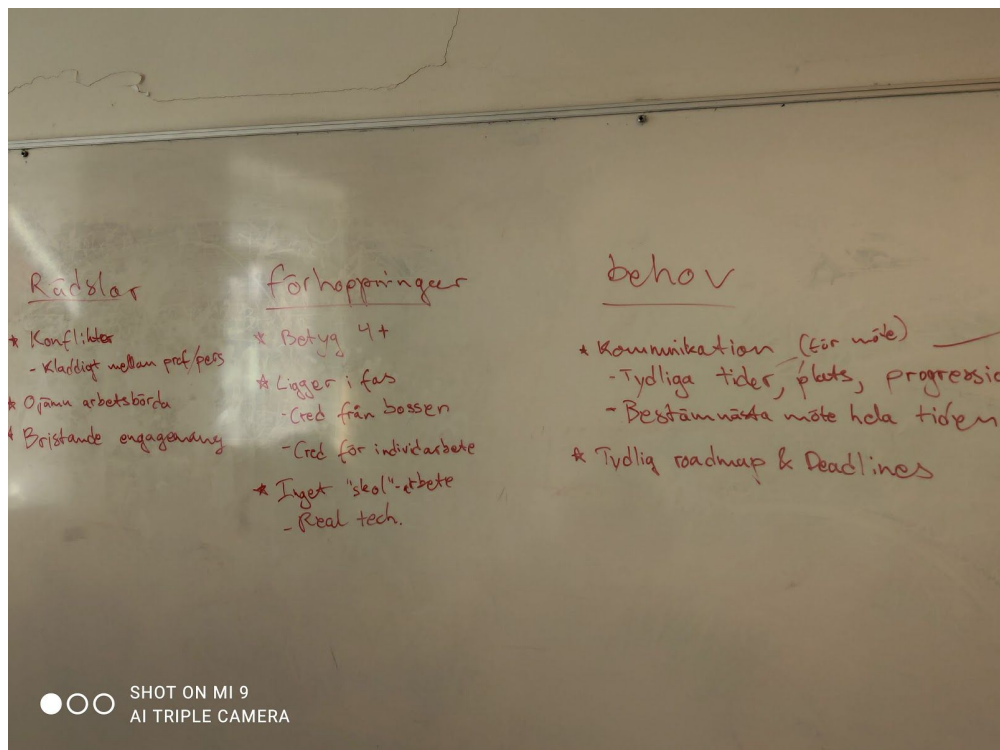 Rädslor
* Konflikter
- Kladdigt mellan prof/pers
* Ojämn arbetsbörda
* Bristande engagemang
förhoppningar
* Betyg 4+
* Ligger i fas
- Cred från bossen
- Cred för individarbete
* Inget "skol"-arbete
- Real tech.
behov
* Kommunikation (för möte)
- Tydliga tider, plats, progressio
- Bestäm nästa möte hela tiden
* Tydlig roadmap & Deadlines
SHOT ON MI 9
AI TRIPLE CAMERA